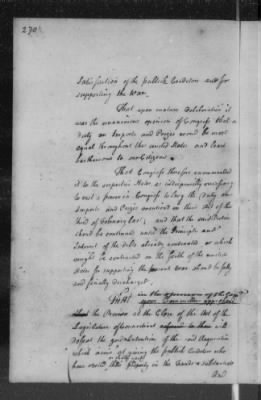 270
Satisfaction of the publick Creditors and for
supporting the War.
That upon mature deliberation it
was the unanimous opinion of Congress that a
duty on Imports and Prizes would be most
equal throughout the united States and least
burthensome to our Citizens.
That Congress therefore recommended
it to the respective States as indispensably necessary
to vest a power in Congress to levy the duty on
Imports and Prizes mentioned in their Act of the
third of February last; and that the said Duties
should be continued until the Principal and
Interest of the debts already contracted or which
might be contracted on the faith of the united
States for supporting the present War should be fully
and finally discharged.
That in the opinion of the
your Committee
the Proviso at the Close of the Act of the
Legislature of to them will
defeat the good Intention of the said Requisition
which aims of giving the publick Creditors who
have Property in the Funds a substantial
And